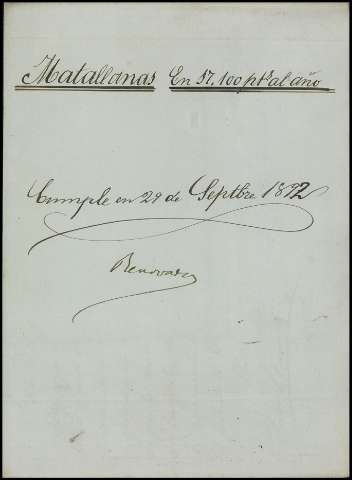 Matallanas En 57,100 pts al año
Cumple en 29 de Septbre 1892
Renovada